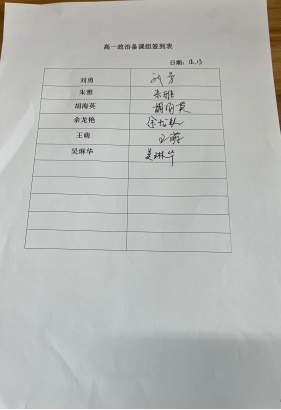 高一政治备课组签到表
日期：4.13
刘勇 刘勇
朱雅 朱雅
胡海英 胡海英
余龙艳 余龙艳
王萌 王萌
吴琳华 吴琳华